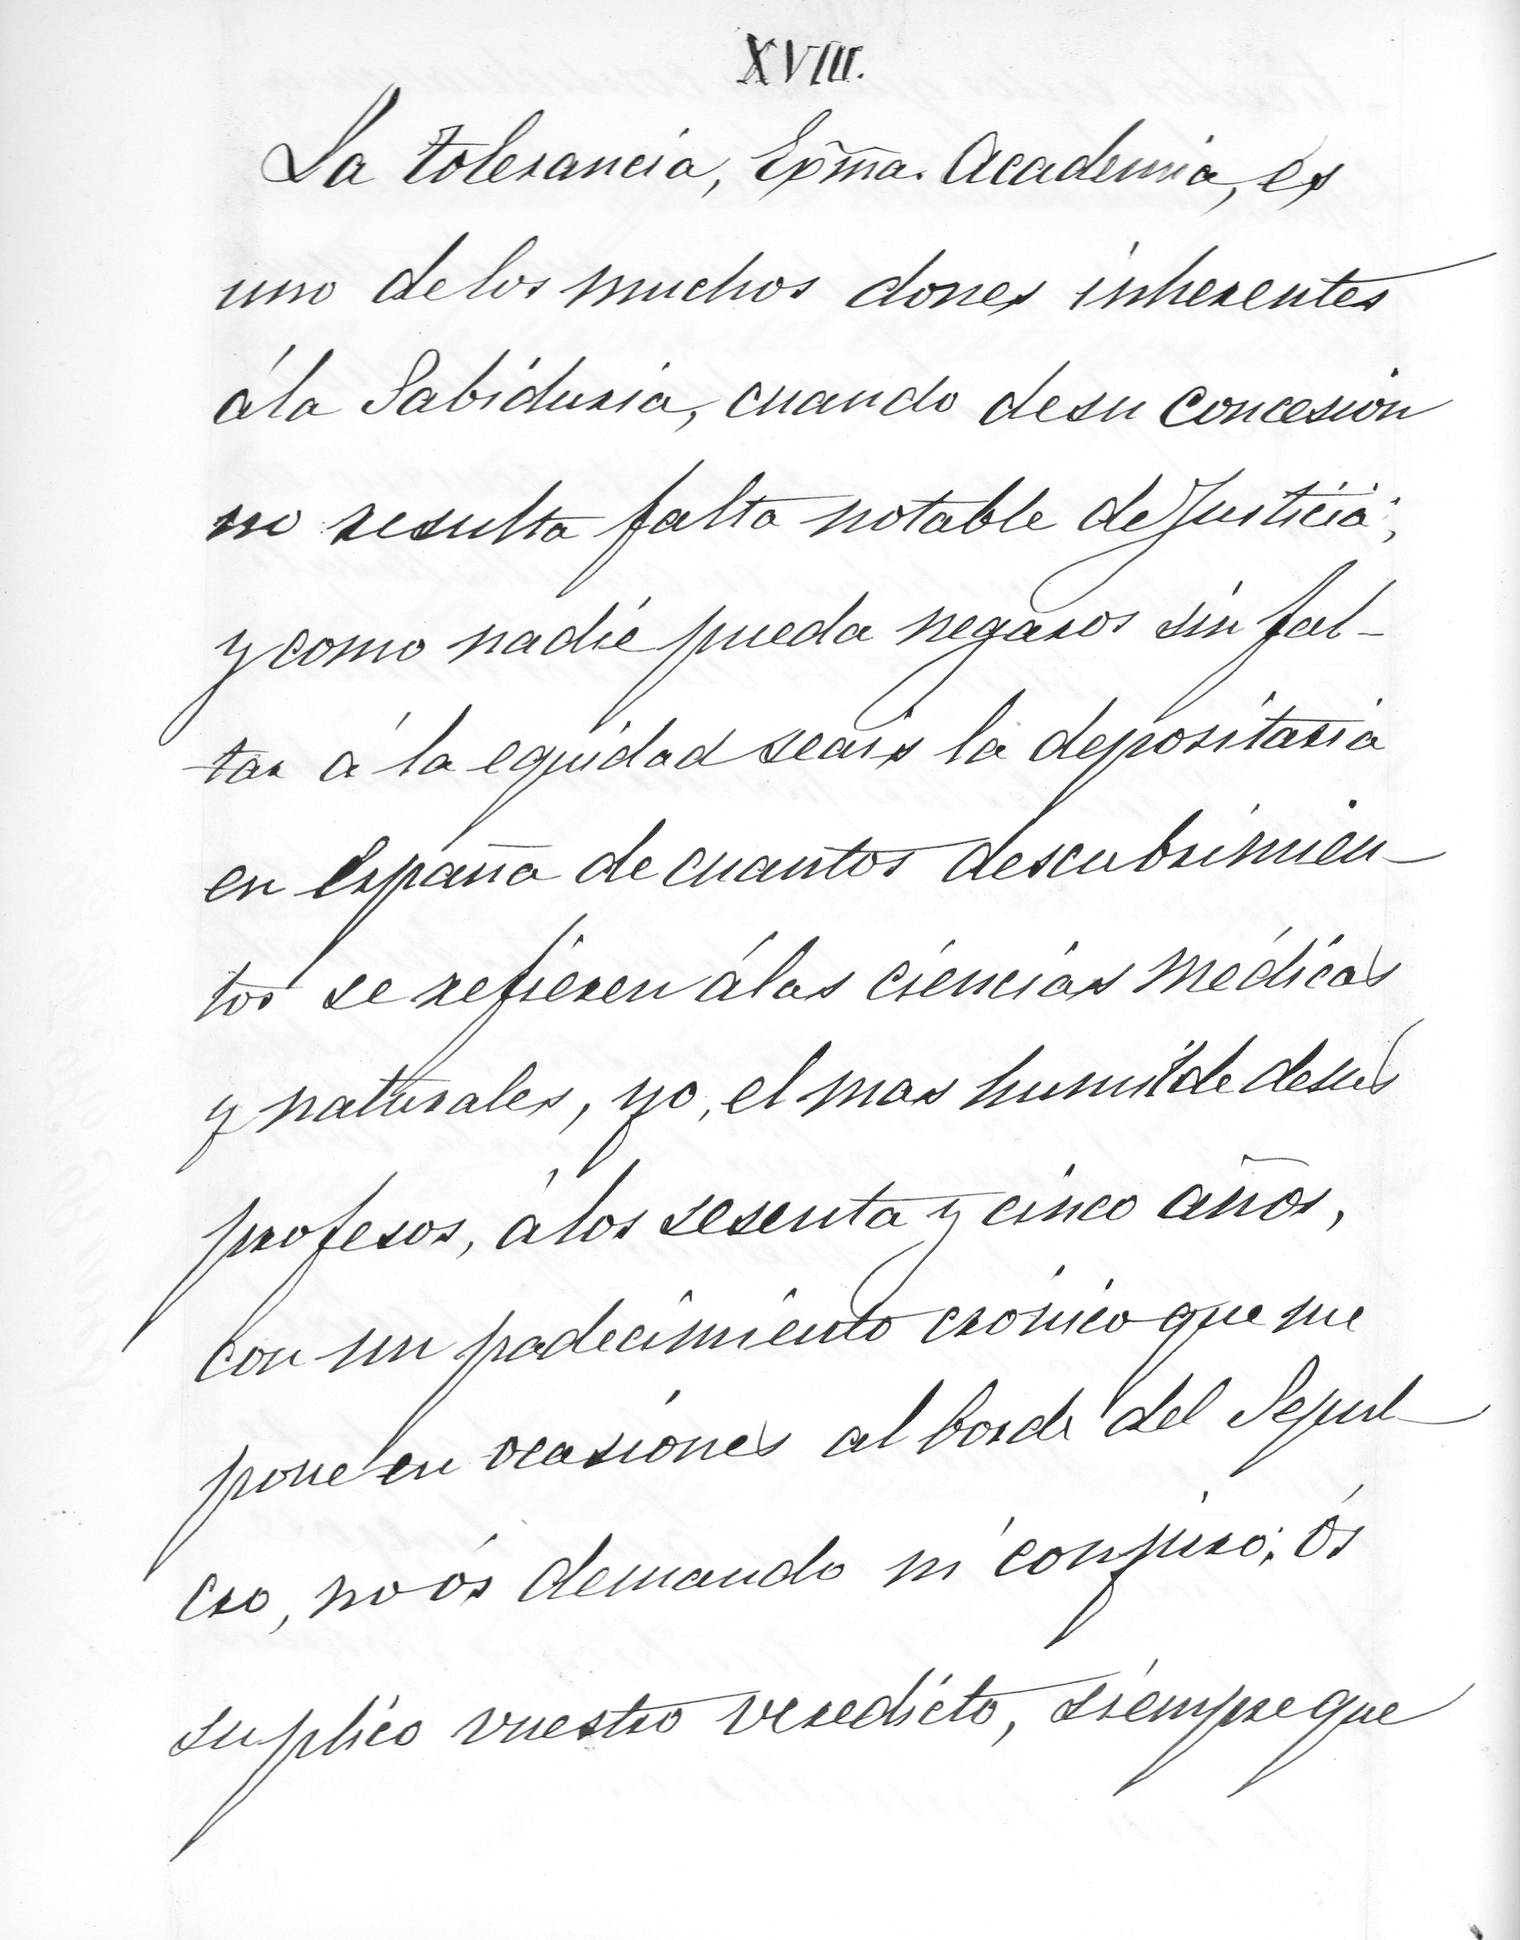 XVIII.
La tolerancia, Exma. Academia, es
uno de los muchos dones inherentes
á la Sabiduria, cuando de su concesion
no resulta falta notable de Justicia;
y como nadie pueda negaros sin fal-
tar á la equidad seais la depositaria
en España de cuantos descubrimien-
tos se refieren á las ciencias médicas
y naturales, yo, el mas humilde de sus
profesos, á los sesenta y cinco años,
con un padecimiento crónico que me
pone en ocasiones al borde del Sepul-
cro, no ós demando ni conjuro; ós
suplico vuestro veredicto, siempre que